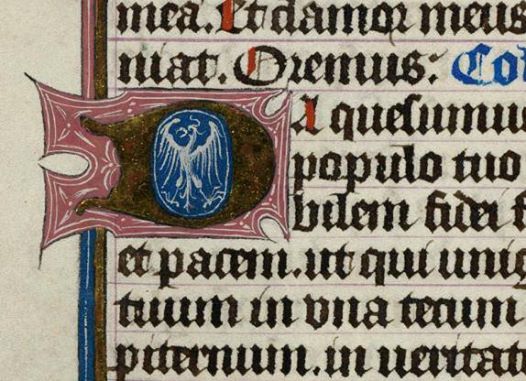 mea. Et clamor meus
niat. Oremus: Co
DA quesumu
populo tuo
bilem fidei f
et pacem. ut qui unig
tuum in vna tecum
piternum. in ueritat